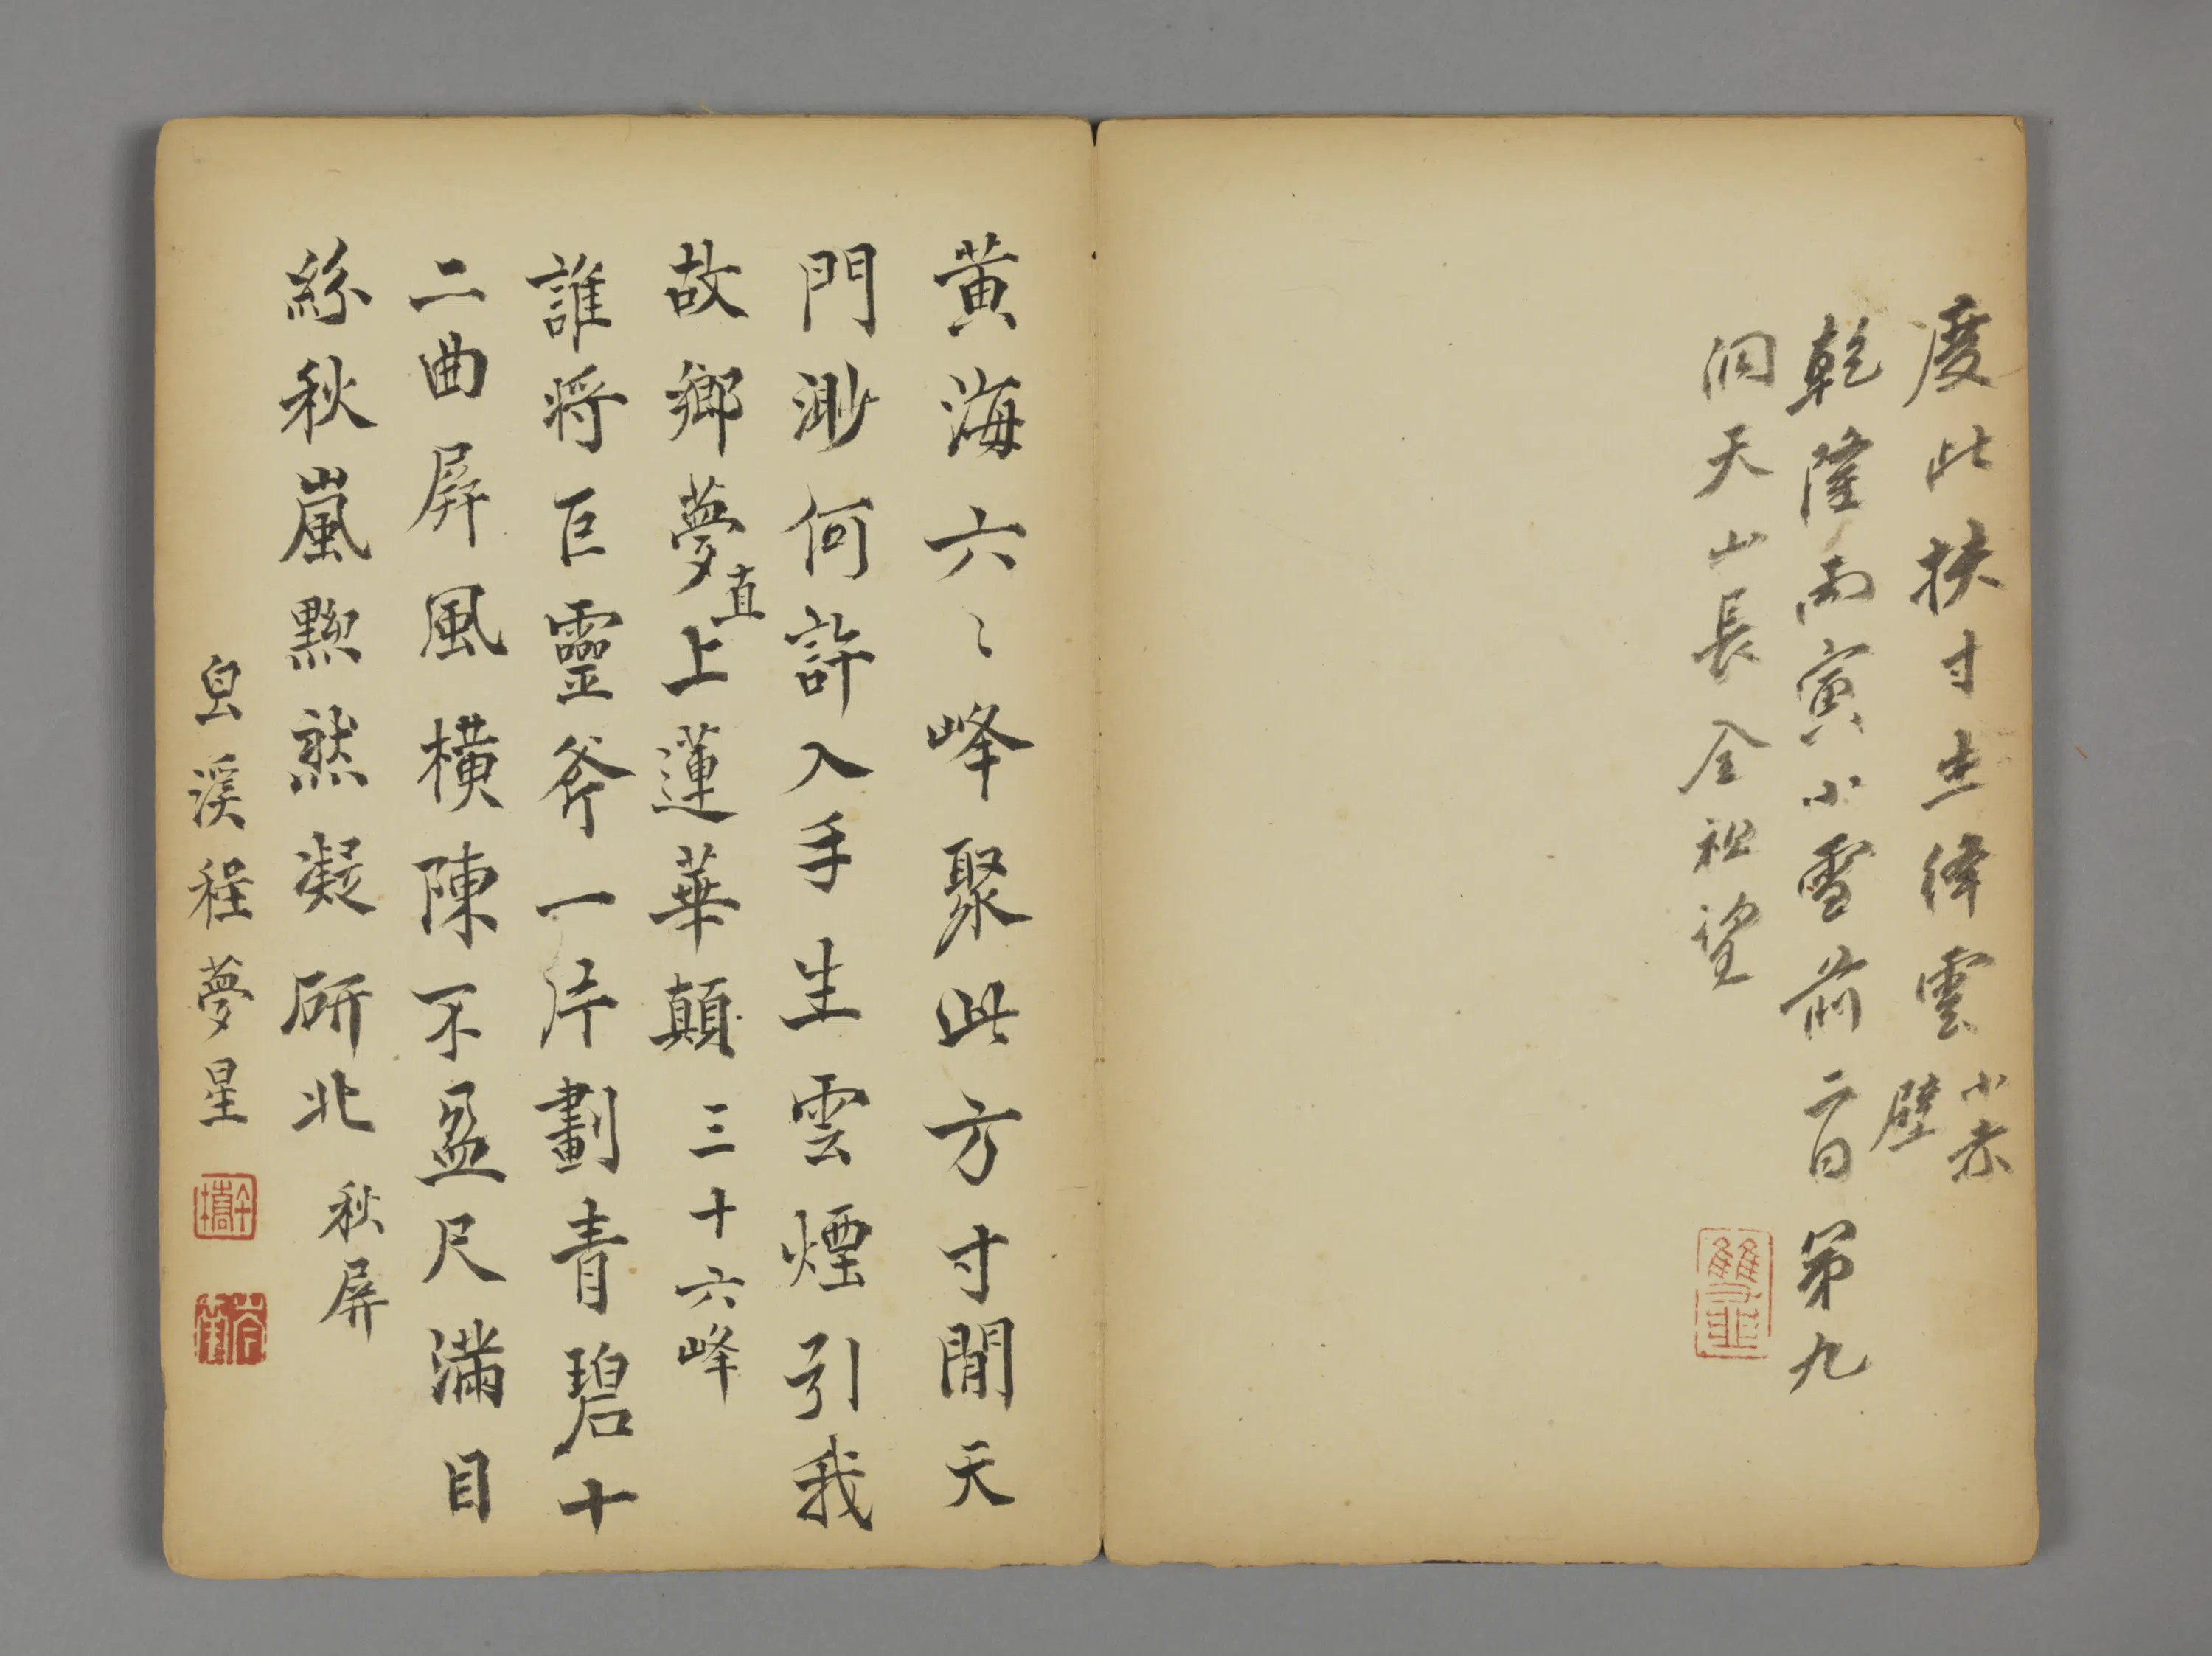 度此扶寸土絳雲 小赤壁
乾隆丙寅小雪前二日第九
洞天山長全祖望
雙韭
黃海六〻峰聚此方寸間天
門渺何許入手生雲煙引我
故鄉夢直上蓮華顛 三十六峰
誰將巨靈斧一片劃青碧十
二曲屏風橫陳不盈尺滿目
紛秋嵐黝然凝硏北 秋屏
皀溪程夢星
午橋